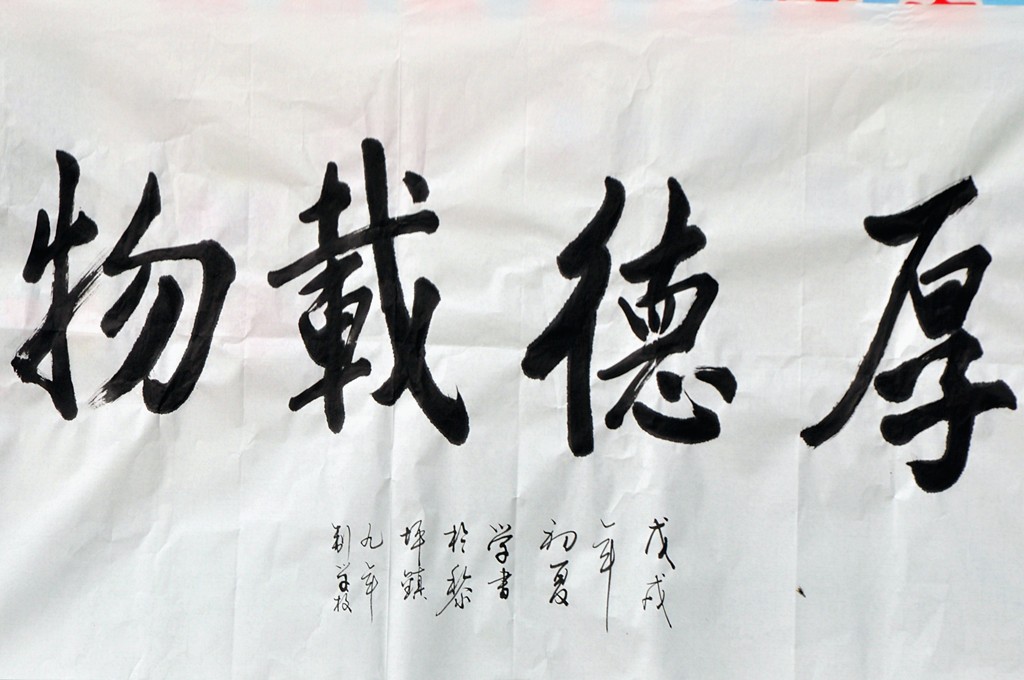 厚德載物
戊戌
年
初夏
学書
於黎
坪鎮
九年
制学校